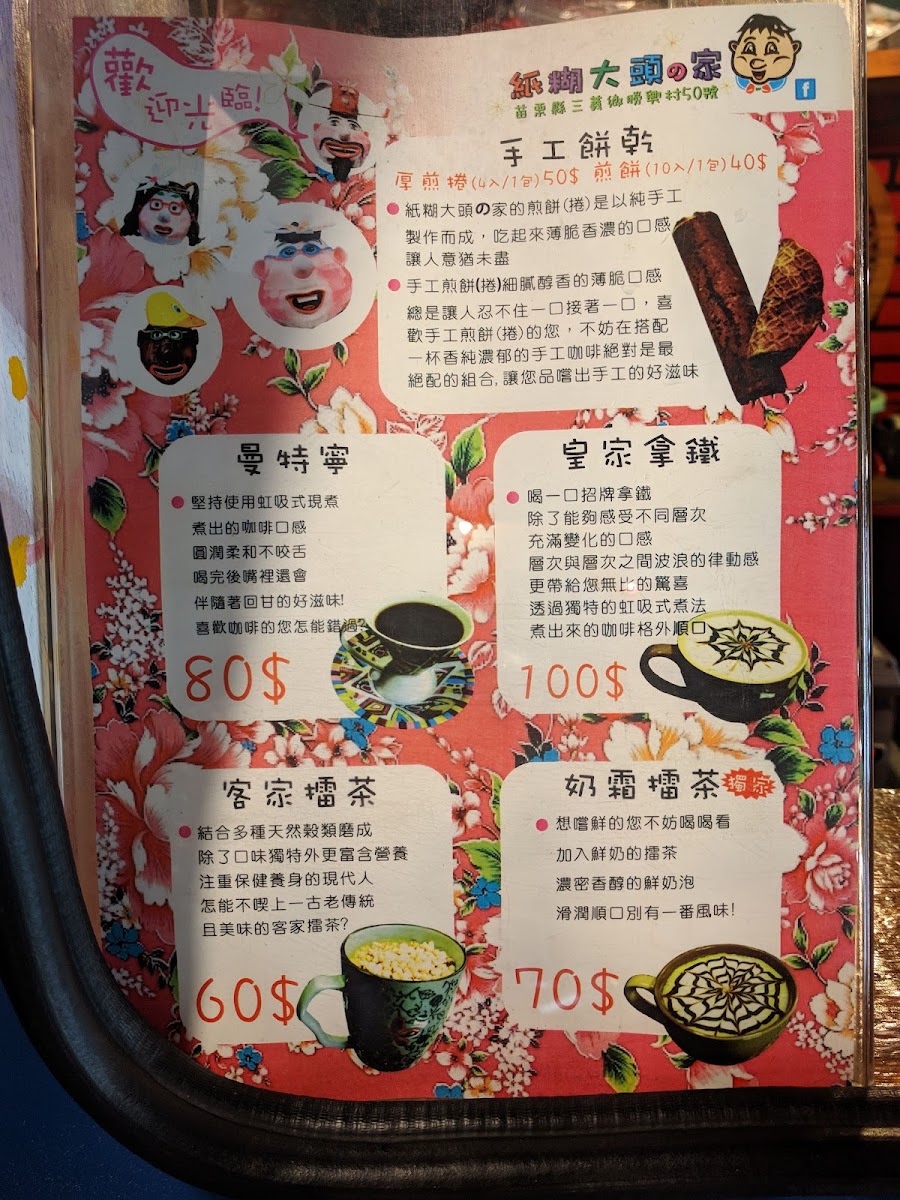 歡迎光臨!
紙糊大頭の家
苗栗縣三義鄉勝興村50號
f
手工餅乾
厚煎捲(4入/1包)50$ 煎餅(10入/1包)40$
紙糊大頭の家的煎餅(捲)是以純手工
製作而成，吃起來薄脆香濃的口感
讓人意猶未盡
手工煎餅(捲)細膩醇香的薄脆口感
總是讓人忍不住一口接著一口，喜
歡手工煎餅(捲)的您，不妨在搭配
一杯香純濃郁的手工咖啡絕對是最
絕配的組合,讓您品嚐出手工的好滋味
曼特寧
堅持使用虹吸式現煮
煮出的咖啡口感
圓潤柔和不咬舌
喝完後嘴裡還會
伴隨著回甘的好滋味!
喜歡咖啡的您怎能錯過?
80$
皇家拿鐵
喝一口招牌拿鐵
除了能夠感受不同層次
充滿變化的口感
層次與層次之間波浪的律動感
更帶給您無比的驚喜
透過獨特的虹吸式煮法
煮出來的咖啡格外順口
100$
客家擂茶
結合多種天然穀類磨成
除了口味獨特外更富含營養
注重保健養身的現代人
怎能不喫上一古老傳統
且美味的客家擂茶?
60$
奶霜擂茶 獨家
想嚐鮮的您不妨喝喝看
加入鮮奶的擂茶
濃密香醇的鮮奶泡
滑潤順口別有一番風味!
70$